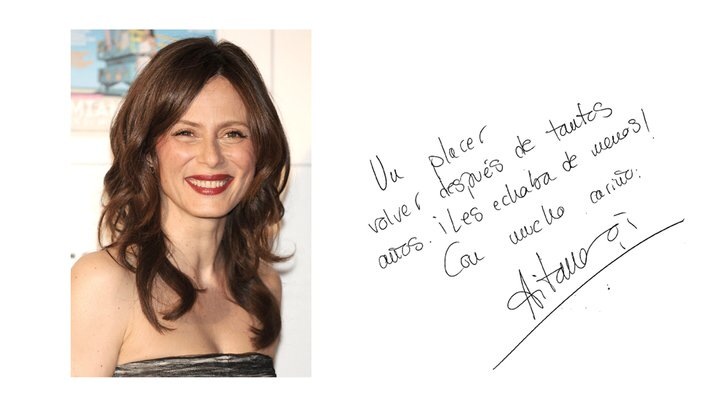 Un placer
volver después de tantos
años. ¡Les echaba de menos!
Con mucho cariño.
Aitana